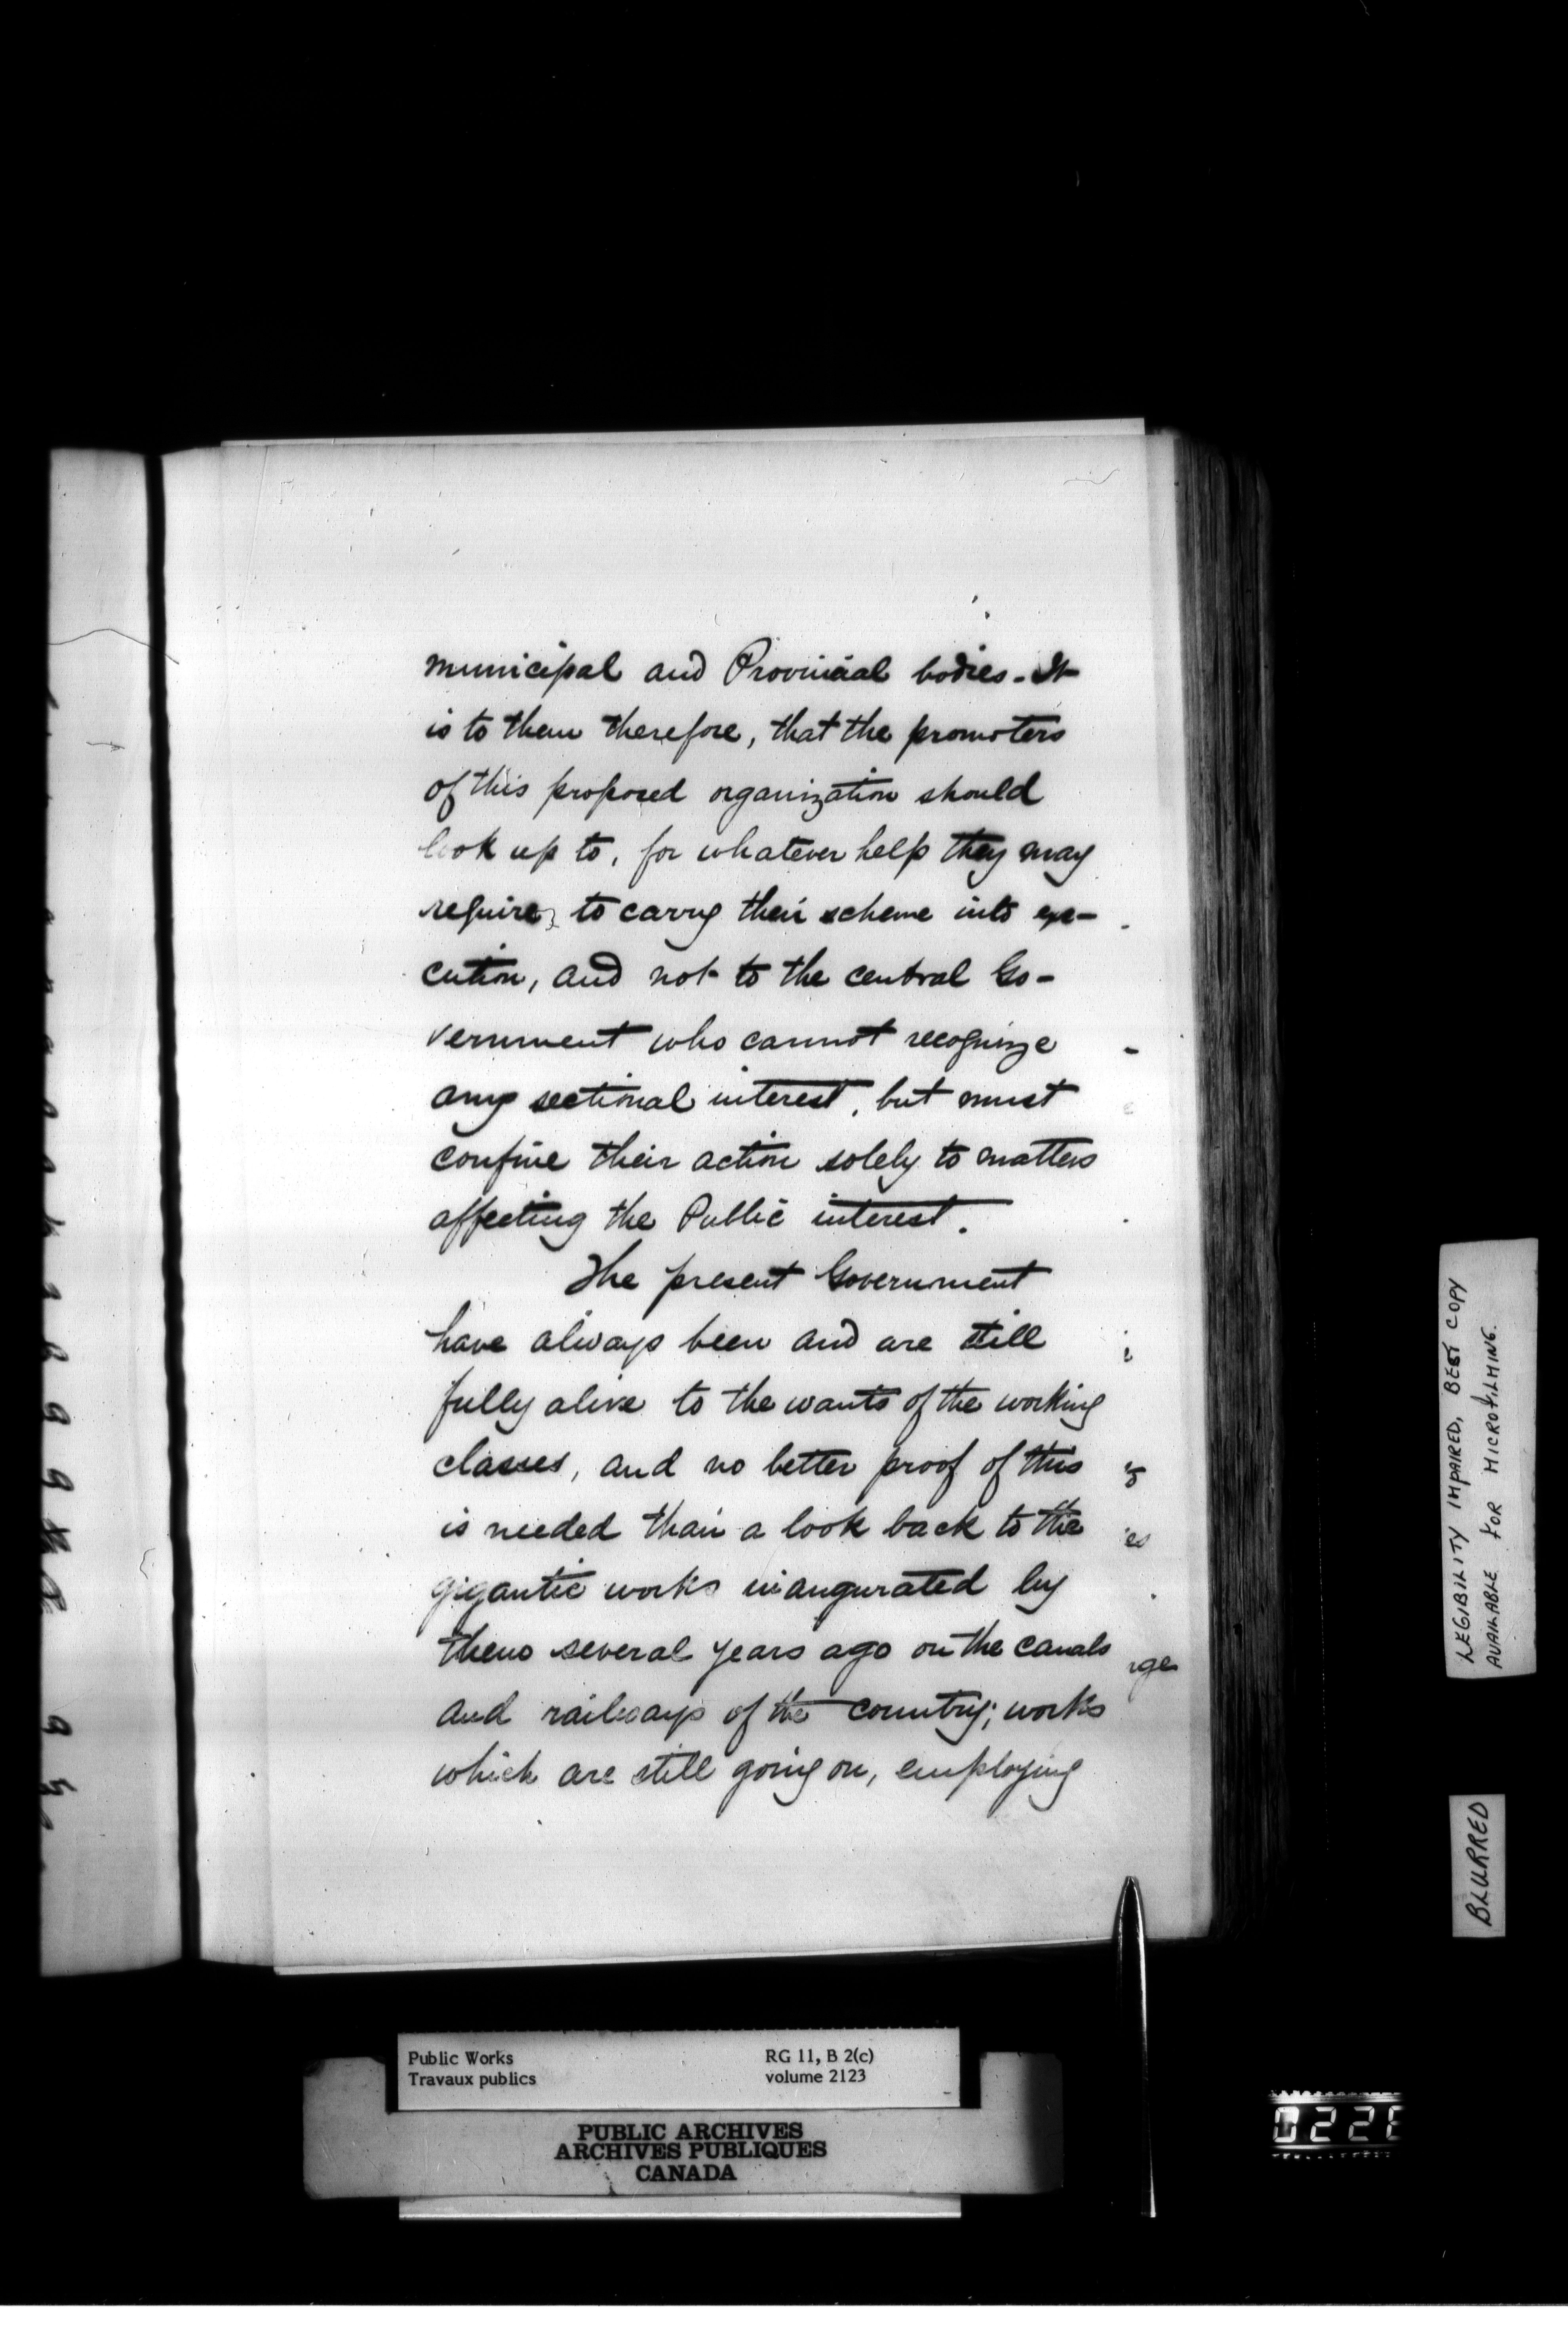 municipal and Provincial bodies - It
is to them therefore, that the promoters
of this proposed organization should
look up to, for whatever help they may
require, to carry their scheme into exe-
cution, and not to the central Go-
vernment who cannot recognize
any sectional interest, but must
confine their action solely to matters
affecting the Public interest.
The present Government
have always been and are still
fully alive to the wants of the working
classes, and no better proof of this
is needed than a look back to the
gigantic works inaugurated by
them several years ago on the canals
and railways of the country; works
which are still going on, employing
LEGIBILITY IMPAIRED, BEST COPY
AVAILABLE FOR MICROFILMING.
BLURRED
Public Works RG 11, B 2(c)
Travaux publics volume 2123
PUBLIC ARCHIVES
ARCHIVES PUBLIQUES
CANADA